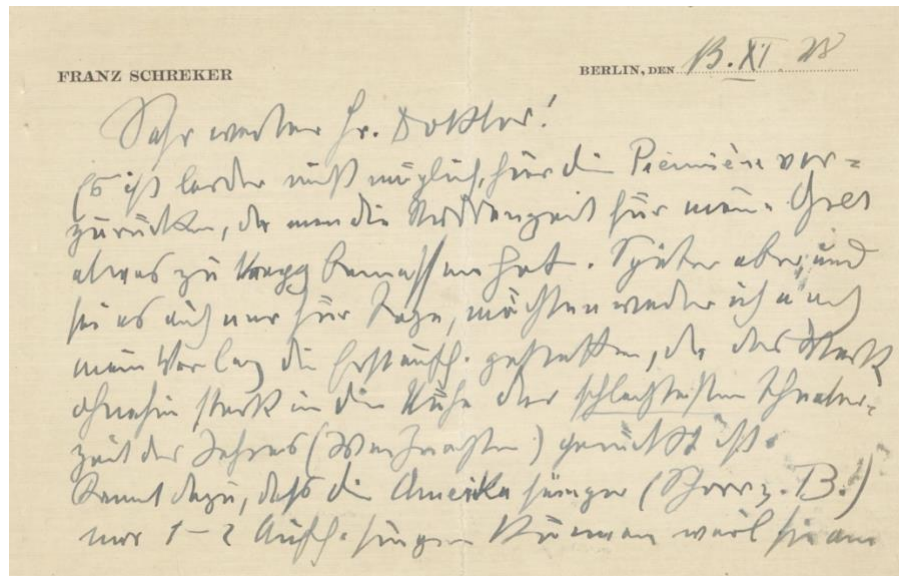 FRANZ SCHREKER
BERLIN, DEN 13. XI 28
Sehr werter Hr. Doktor!
Es ist leider nicht möglich, hier die Première vor-
zurücken, da man die für meine
etwas zu knapp bemessen hat. Später aber, und
sei es auch nur für Tage, möchten weder ich noch
mein Verlag die Erstauff. gestatten, da das Werk
ohnehin stark in die Nähe der schlechtesten Theater-
zeit des Jahres (Weihnachten) gerückt ist.
Kommt dazu, daß die Amerika sänger (Schorr z. B.)
nur 1-2 Auff. singen können weil sie am